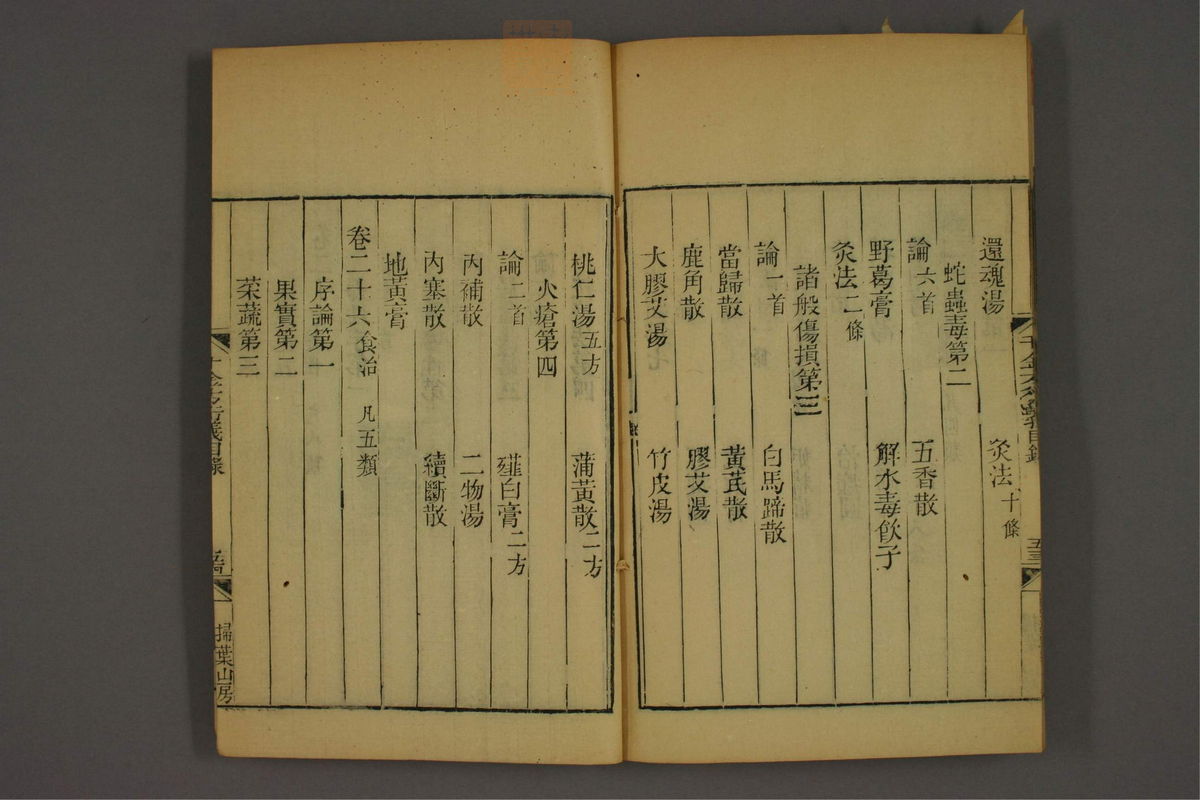 還魂湯 灸法十條
蛇蟲毒第二
論六首 五香散
野葛膏 解水毒飲子
灸法二條
諸般傷損第三
論一首 白馬蹄散
當歸散 黃芪散
鹿角散 膠艾湯
大膠艾湯 竹皮湯
桃仁湯五方 蒲黃散二方
火瘡第四
論二首 薤白膏二方
內補散 二物湯
內塞散 續斷散
地黃膏
卷二十六食治 凡五類
序論第一
果實第二
菜蔬第三
千金方衍義目錄
掃葉山房